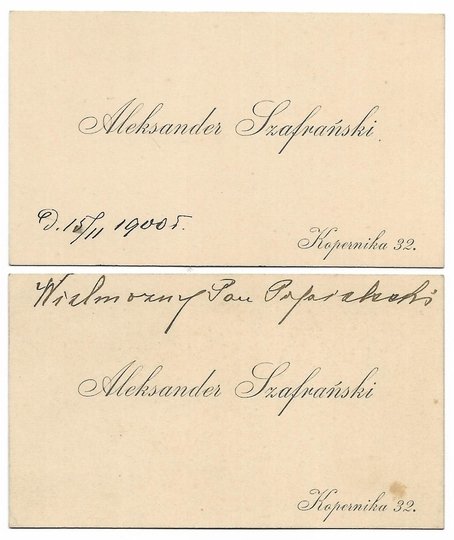 Aleksander Szafrański.
D. 15/II 1900 r.
Kopernika 32.
Wielmożny Pan
Aleksander Szafrański
Kopernika 32.